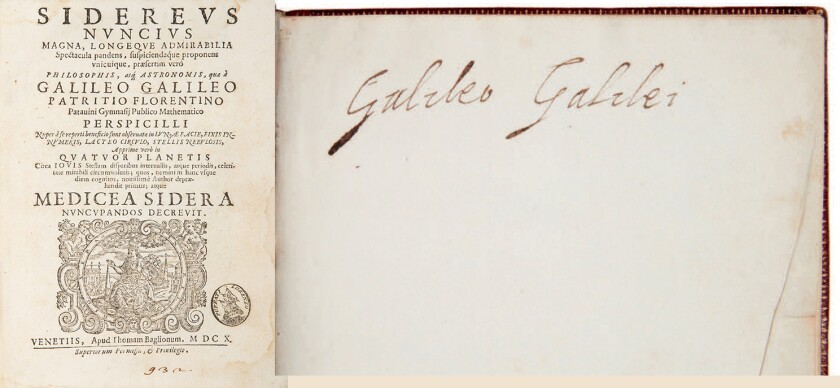 SIDEREVS
NVNCIVS
MAGNA, LONGEQVE ADMIRABILIA
Spectacula pandens, suspiciendaque proponens
vnicuique, præsertim verò
PHILOSOPHIS, atq́ ASTRONOMIS, quæ à
GALILEO GALILEO
PATRITIO FLORENTINO
Patauini Gymnasij Publico Mathematico
PERSPICILLI
Nuper à se reperti beneficio sunt obseruata in LVNÆ FACIE, FIXIS IN-
NVMERIS, LACTEO CIRCVLO, STELLIS NEBVLOSIS,
Apprime verò in
QVATVOR PLANETIS
Circa IOVIS Stellam disparibus interuallis, atque periodis, celeri-
tate mirabili circumuolutis; quos, nemini in hanc vsque
diem cognitos, nouissimè Author depræ-
hendit primus; atque
MEDICEA SIDERA
NVNCVPANDOS DECREVIT.
VENETIIS, Apud Thomam Baglionum. MDCX.
Superiorum Permissu, & Priuilegio.
Galileo Galilei